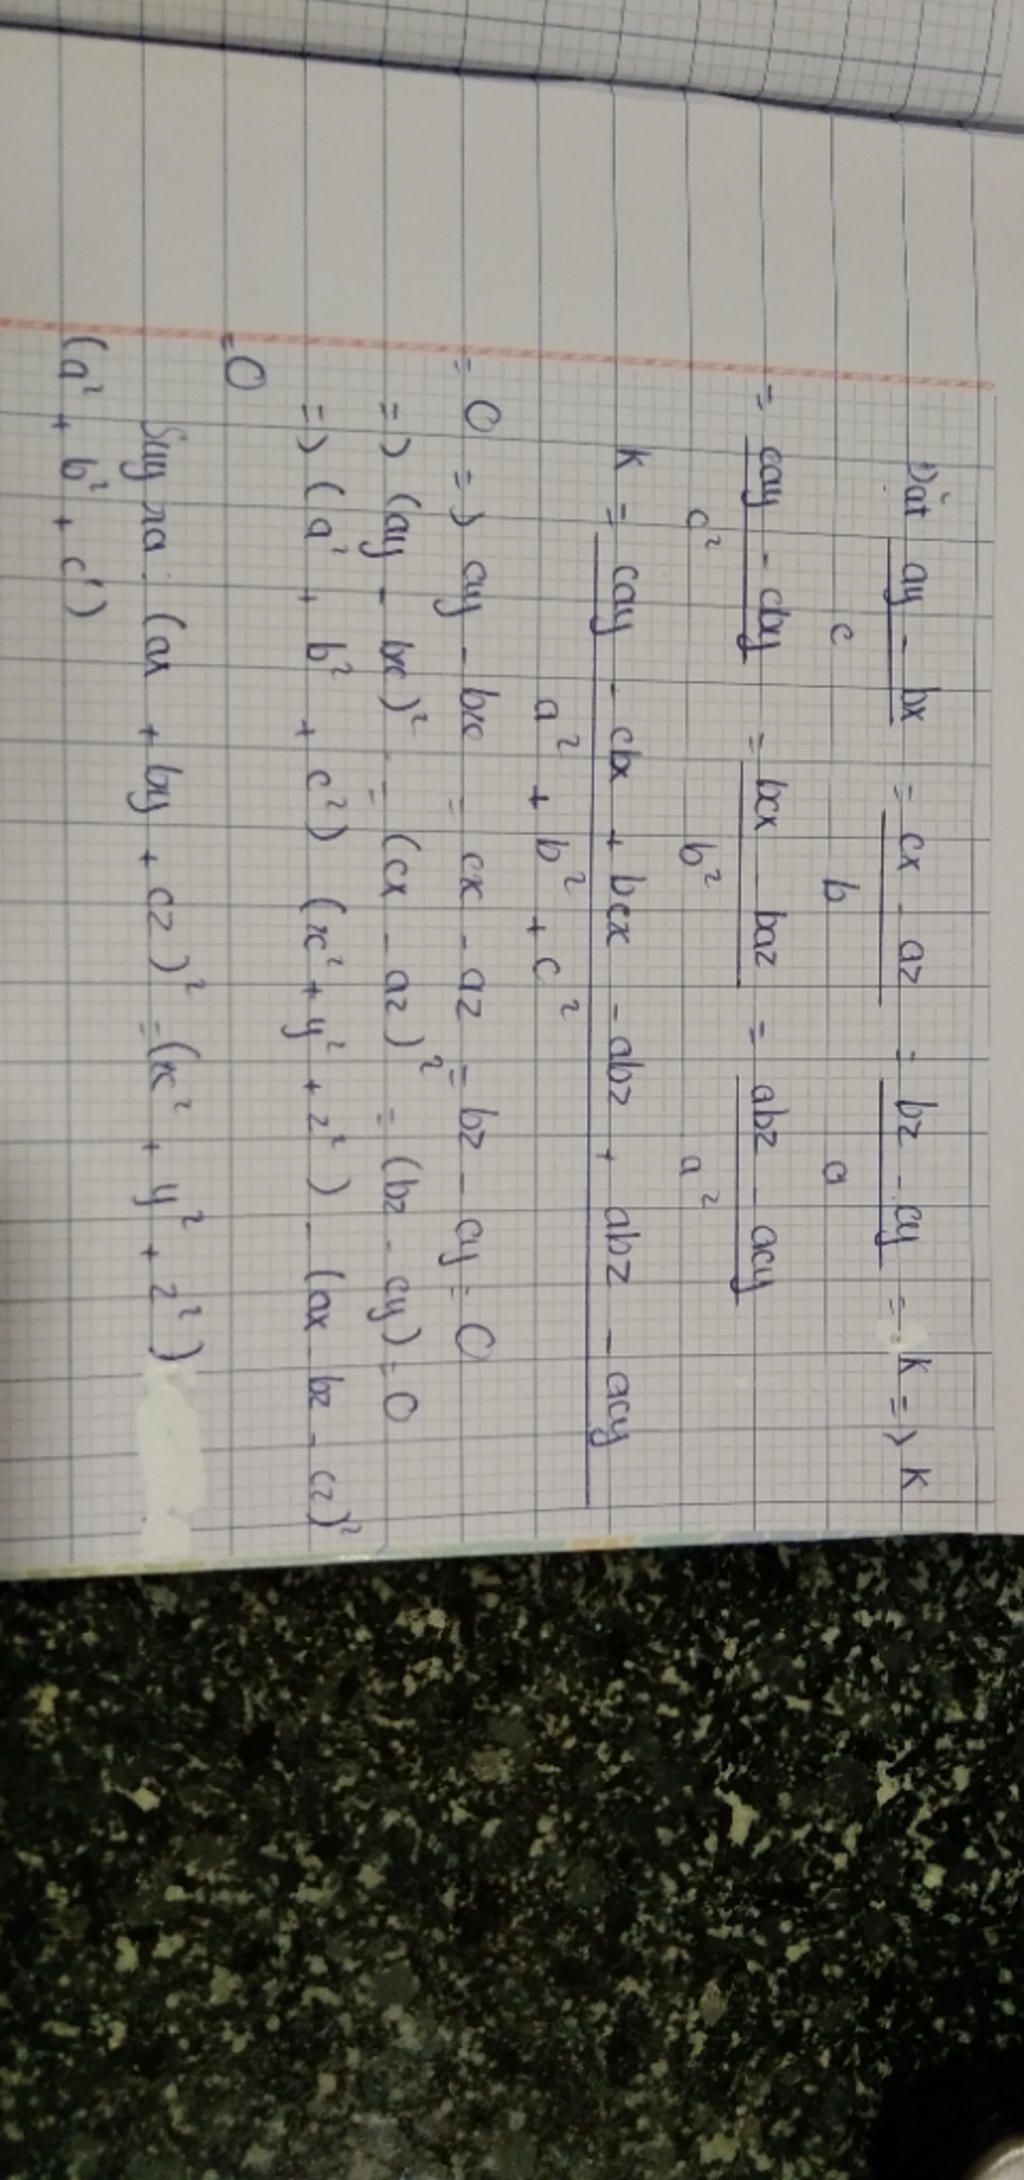 Đặt ay - bx = cx - az = bz - cy = K => K
c b a
= cay - cby = bcx - baz = abz - acy
c² b² a²
K = cay - cbx + bcx - abz + abz - acy
a² + b² + c²
= 0 => ay - bx = cx - az = bz - cy = 0
=> (ay - bx)² = (cx - az)² = (bz - cy) = 0
=> (a² + b² + c²) (x² + y² + z²) - (ax - bz - cz)²
= 0
Suy ra: (ax + by + cz)² = (x² + y² + z²)
(a² + b² + c²)